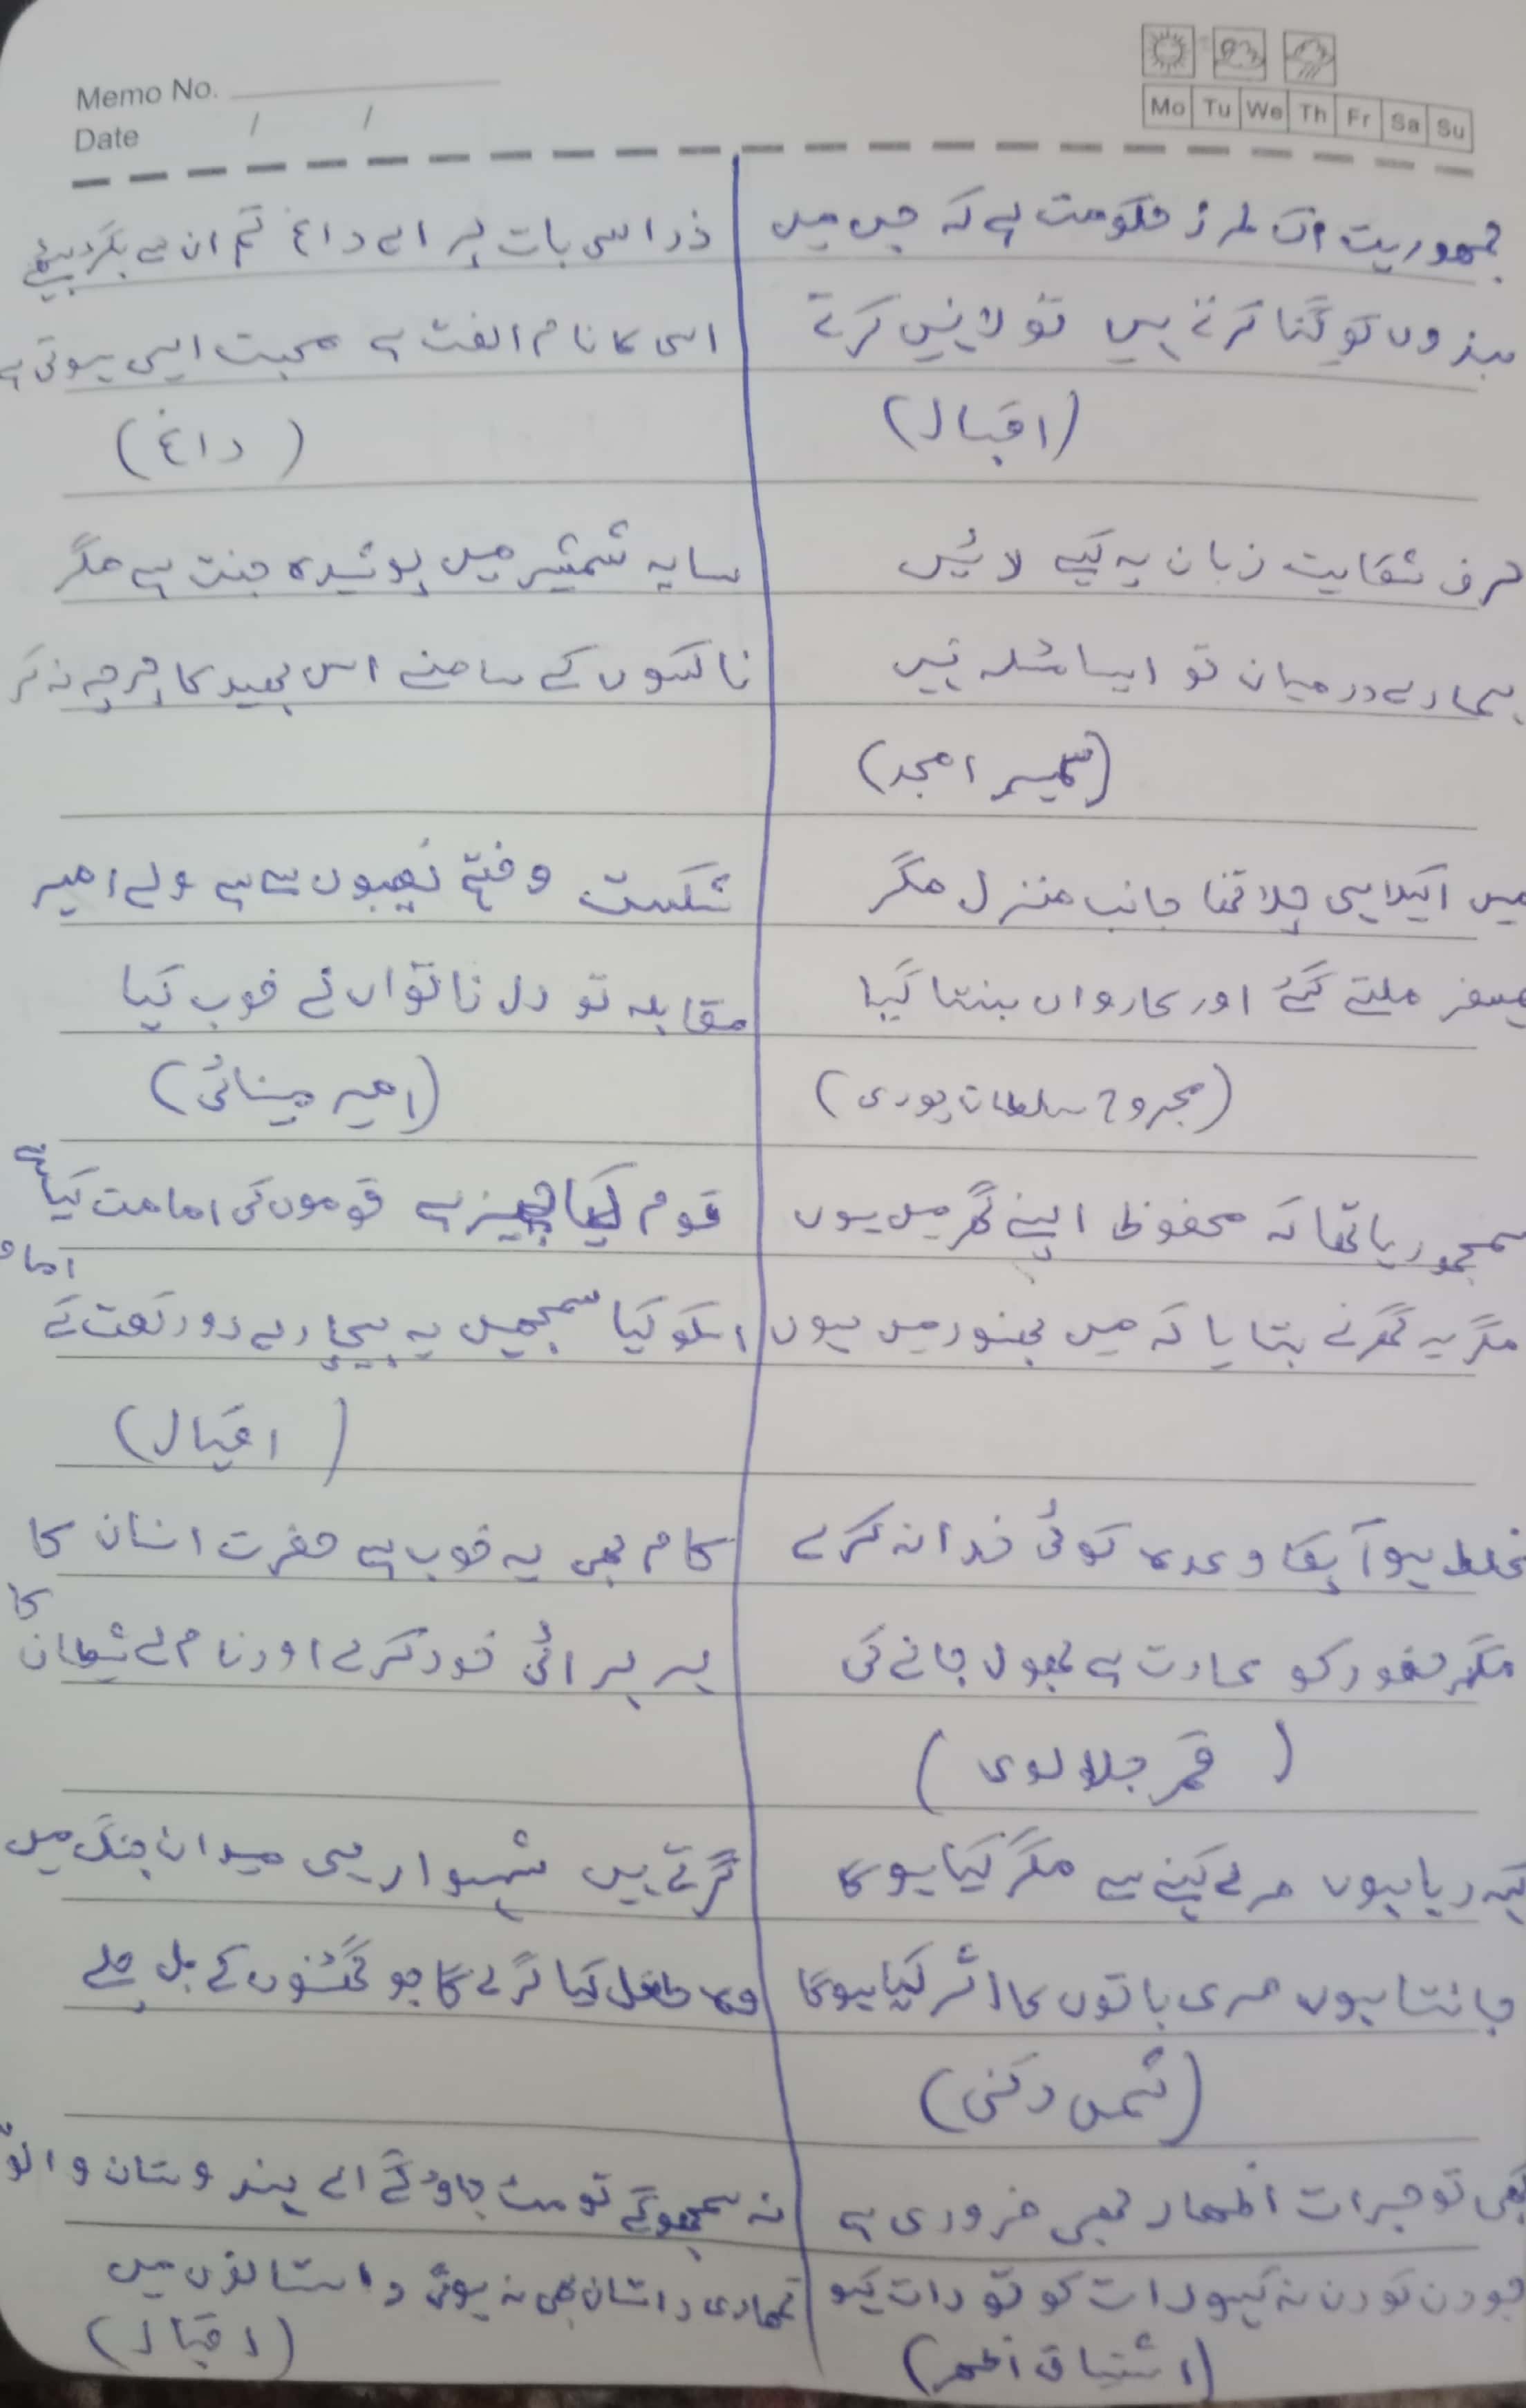 Memo No.
Date / /
Mo Tu We Th Fr Sa Su
جمہوریت اک طرز حکومت ہے کہ جس میں
بندوں کو گنا کرتے ہیں تولا نہیں کرتے
(اقبال)
حرف شکایت زبان پہ کیسے لائیں
ہمارے درمیان تو ایسا مسئلہ نہیں
امجد)
میں اکیلا ہی چلا تھا جانب منزل مگر
ہمسفر ملتے گئے اور کارواں بنتا گیا
(مجروح سلطان پوری)
سمجھ رہا تھا کہ محفوظ اپنے گھر میں ہوں
مگر یہ گھر نے بتایا کہ میں بھنور میں ہوں
غلط ہو آپکا وعدہ کوئی خدا نہ کرے
مگر حضور کو عادت ہے بھول جانے کی
(قمر جلالوی)
کہہ رہا ہوں مرے کہنے سے مگر کیا ہوگا
جانتا ہوں مری باتوں کا اثر کیا ہوگا
(شمس دکنی)
کبھی تو جرات اظہار بھی ضروری ہے
جو دن کو دن نہ کہو رات کو تو رات کہو
(اشتیاق اظہر)
ذرا سی بات پر اے داغ تم ان سے بگڑ بیٹھے
اسی کا نام الفت ہے محبت ایسی ہوتی ہے
(داغ)
سایہ شمشیر میں پوشیدہ جنت ہے مگر
ناکسوں کے سامنے اس بھید کا چرچہ نہ کر
شکست وفتح نصیبوں سے ہے ولے امیر
مقابلہ تو دل ناتواں نے خوب کیا
(امیر مینائی)
قوم کیا چیز ہے قوموں کی امامت کیا ہے
اسکو کیا سمجھیں یہ بیچارے دو رکعت کے امام
(اقبال)
کام بھی یہ خوب ہے حضرت انسان کا
ہر برائی خود کرے اور نام لے شیطان کا
گرتے ہیں شہسوار ہی میدان جنگ میں
وہ طفل کیا گرے گا جو گھٹنوں کے بل چلے
نہ سمجھوگے تو مٹ جاؤگے اے ہندوستان والو
تمہاری داستان بھی نہ ہوگی داستانوں میں
(اقبال)